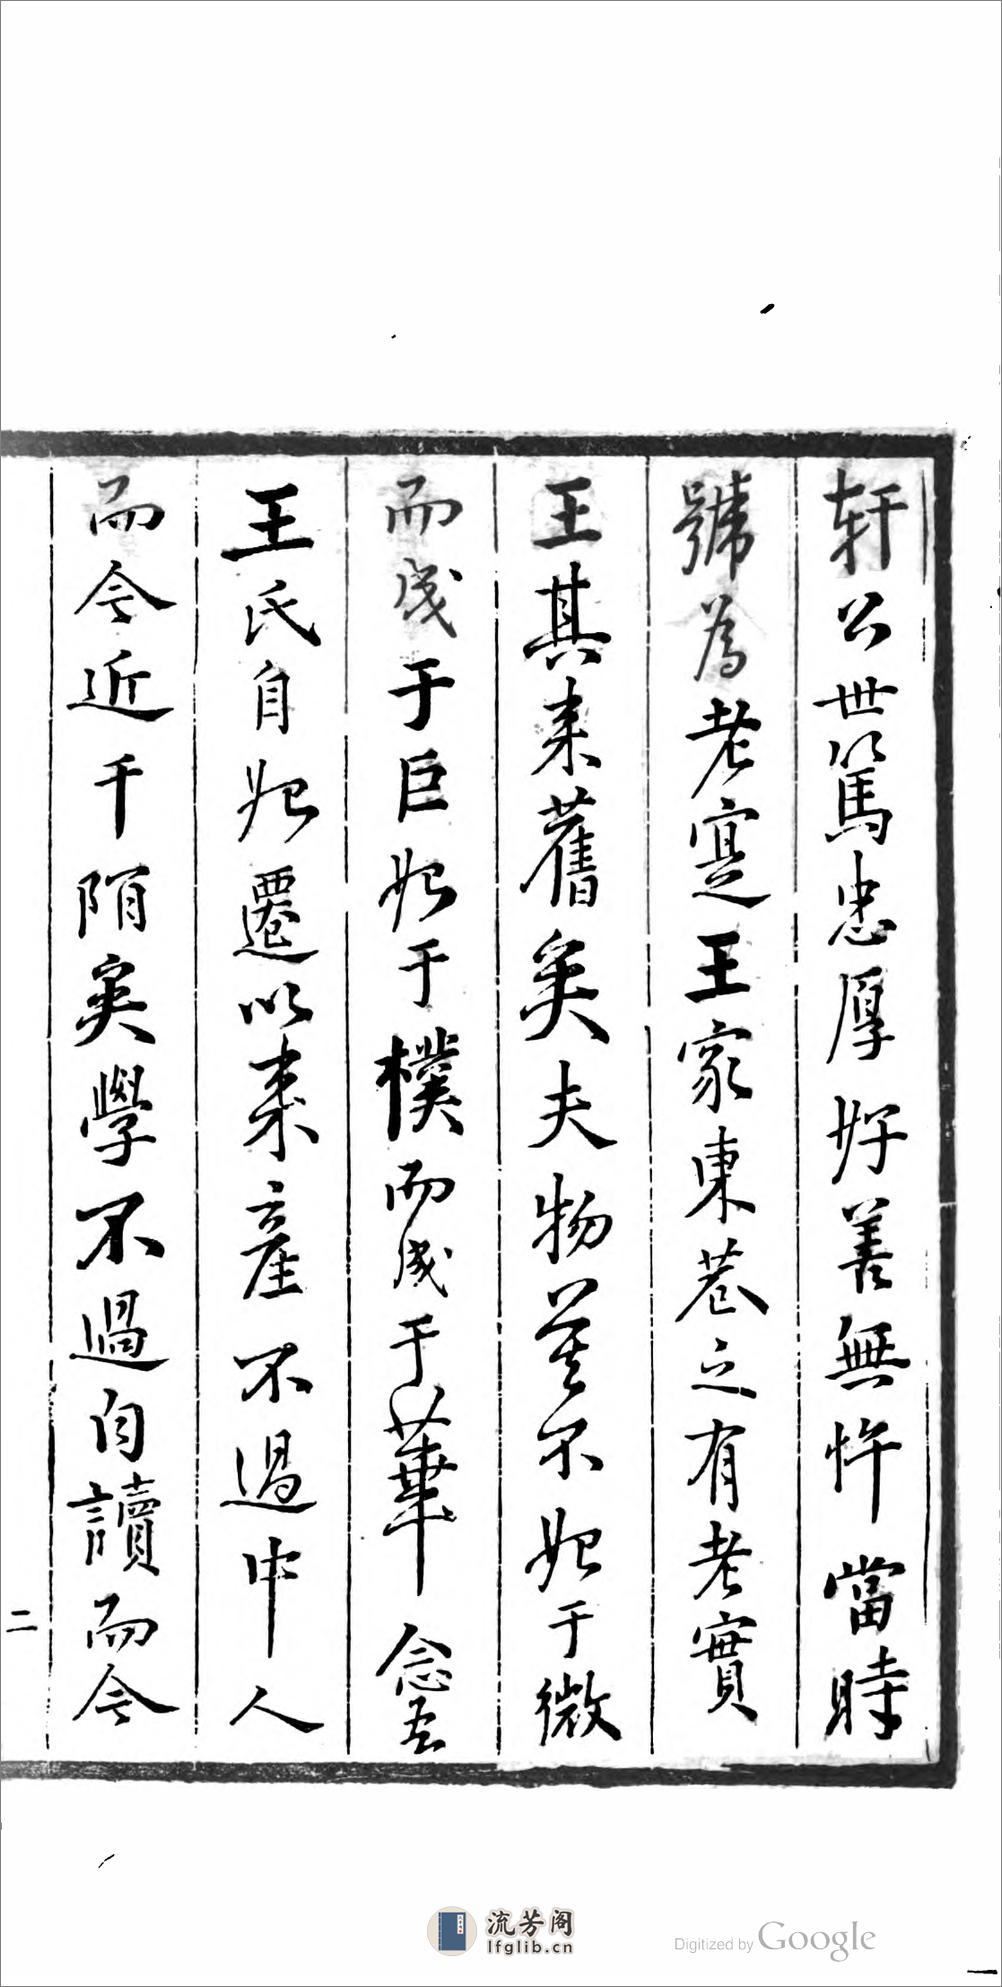 軒公世篤忠厚好善無忤當時
號為老寔王家東巷之有老實
王其来舊矣夫物莫不始于微
而成于巨始于樸而成于華念吾
王氏自始遷以来產不過中人
而今近千陌矣學不過句讀而今
二
流芳阁
lfglib.cn
Digitized by Google